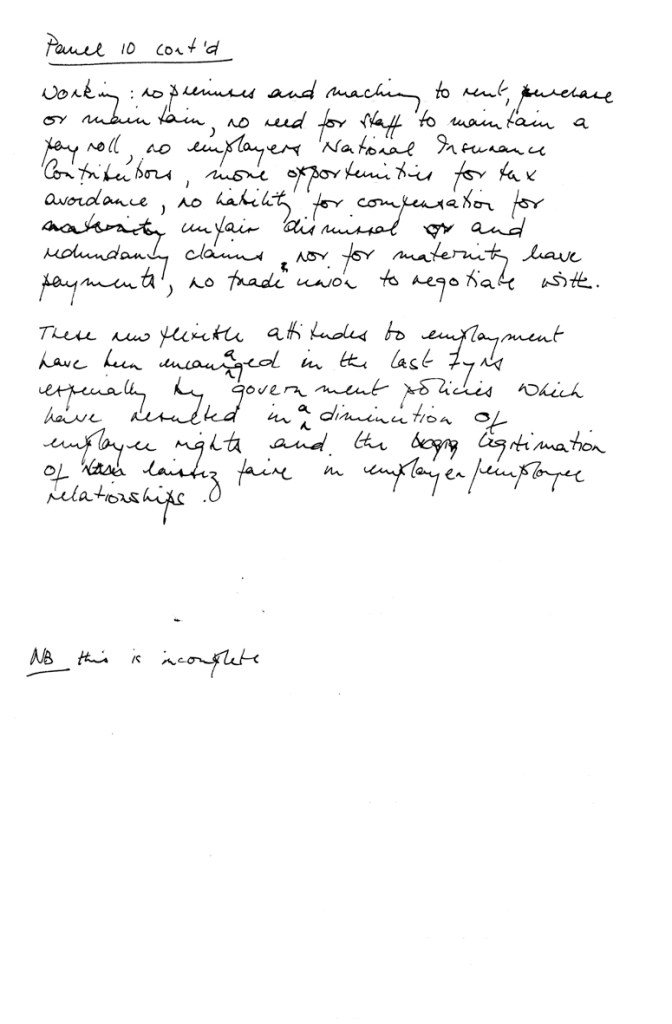 Panel 10 cont'd
working: no premises and machiny to rent, purchase
or maintain, no need for staff to maintain a
pay roll, no employers National Insurance
Contributions, more opportunities for tax
avoidance, no liability for compensation for
maternity unfair dismissal or and
redundancy claims, nor for maternity leave
payments, no trade union to negotiate with.
These new flexible attitudes to employment
have been encouraged in the last 7 yrs
especially by government policies which
have resulted in a diminution of
employee rights and the legitimation
of laissez faire in employer/employee
relationships.
NB this is incomplete